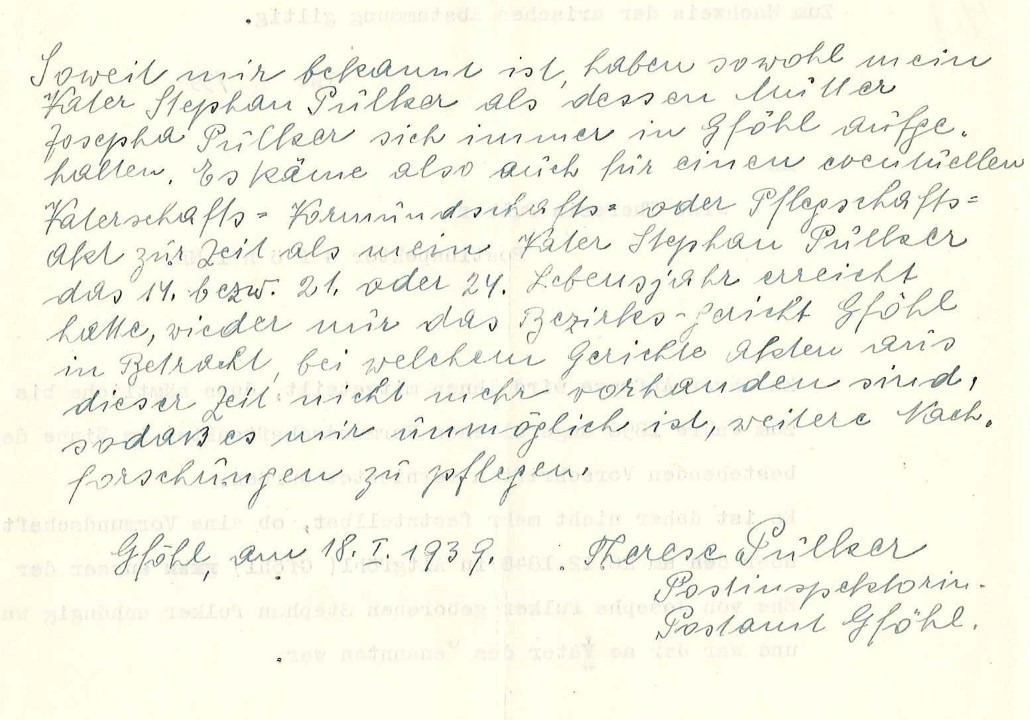 Soweit mir bekannt ist, haben sowohl mein
Vater Stephan Pulker als dessen Mutter
Josepha Pulker sich immer in Gföhl aufge-
halten. Es käme also auch für einen eventuellen
Vaterschafts- Vormundschafts- oder Pflegschafts-
akt zur Zeit als mein Vater Stephan Pulker
das 14. bezw. 21. oder 24. Lebensjahr erreicht
hatte, wieder nur das Bezirks-Gericht Gföhl
in Betracht, bei welchem Gerichte Akten aus
dieser Zeit nicht mehr vorhanden sind,
sodaß es mir unmöglich ist, weitere Nach-
forschungen zu pflegen.
Gföhl, am 18. I. 1939. Therese Pulker
Postinspektorin
Postamt Gföhl.